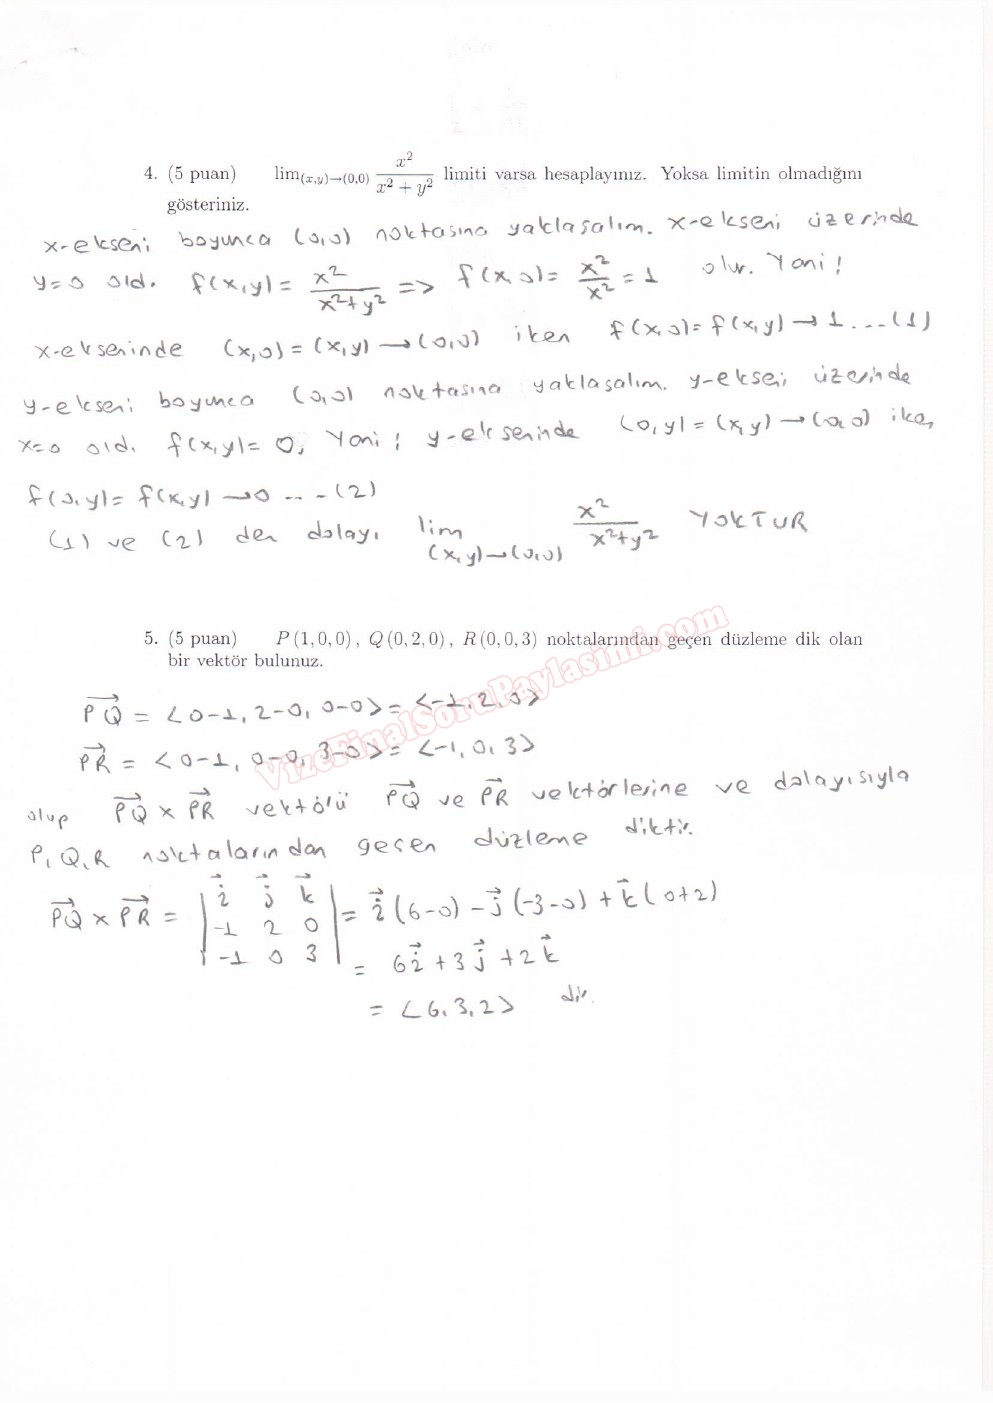 4. (5 puan) lim(x,y)→(0,0) x²/(x² + y²) limiti varsa hesaplayınız. Yoksa limitin olmadığını
gösteriniz.
x-ekseni boyunca (0,0) noktasına yaklaşalım. x-ekseni üzerinde
y=0 old. f(x,y)= x²/(x²+y²) => f(x,0)= x²/x² = 1 olur. Yani;
x-ekseninde (x,0)=(x,y)→(0,0) iken f(x,0)=f(x,y)→1...(1)
y-ekseni boyunca (0,0) noktasına yaklaşalım. y-ekseni üzerinde
x=0 old. f(x,y)=0, Yani; y-ekseninde (0,y)=(x,y)→(0,0) iken
f(0,y)=f(x,y)→0 ...(2)
(1) ve (2) den dolayı lim(x,y)→(0,0) x²/(x²+y²) YOKTUR
5. (5 puan) P(1,0,0), Q(0,2,0), R(0,0,3) noktalarından geçen düzleme dik olan
bir vektör bulunuz.
PQ⃗ = <0-1, 2-0, 0-0> = <-1,2,0>
PR⃗ = <0-1, 0-0, 3-0> = <-1,0,3>
olup PQ⃗ × PR⃗ vektörü PQ⃗ ve PR⃗ vektörlerine ve dolayısıyla
P,Q,R noktalarından geçen düzleme diktir.
PQ⃗ × PR⃗ = |i⃗ j⃗ k⃗| = i⃗(6-0) - j⃗(-3-0) + k⃗(0+2)
|-1 2 0|
|-1 0 3| = 6i⃗ + 3j⃗ + 2k⃗
= <6,3,2> dir.
VizeFinalSoruPaylasimi.com